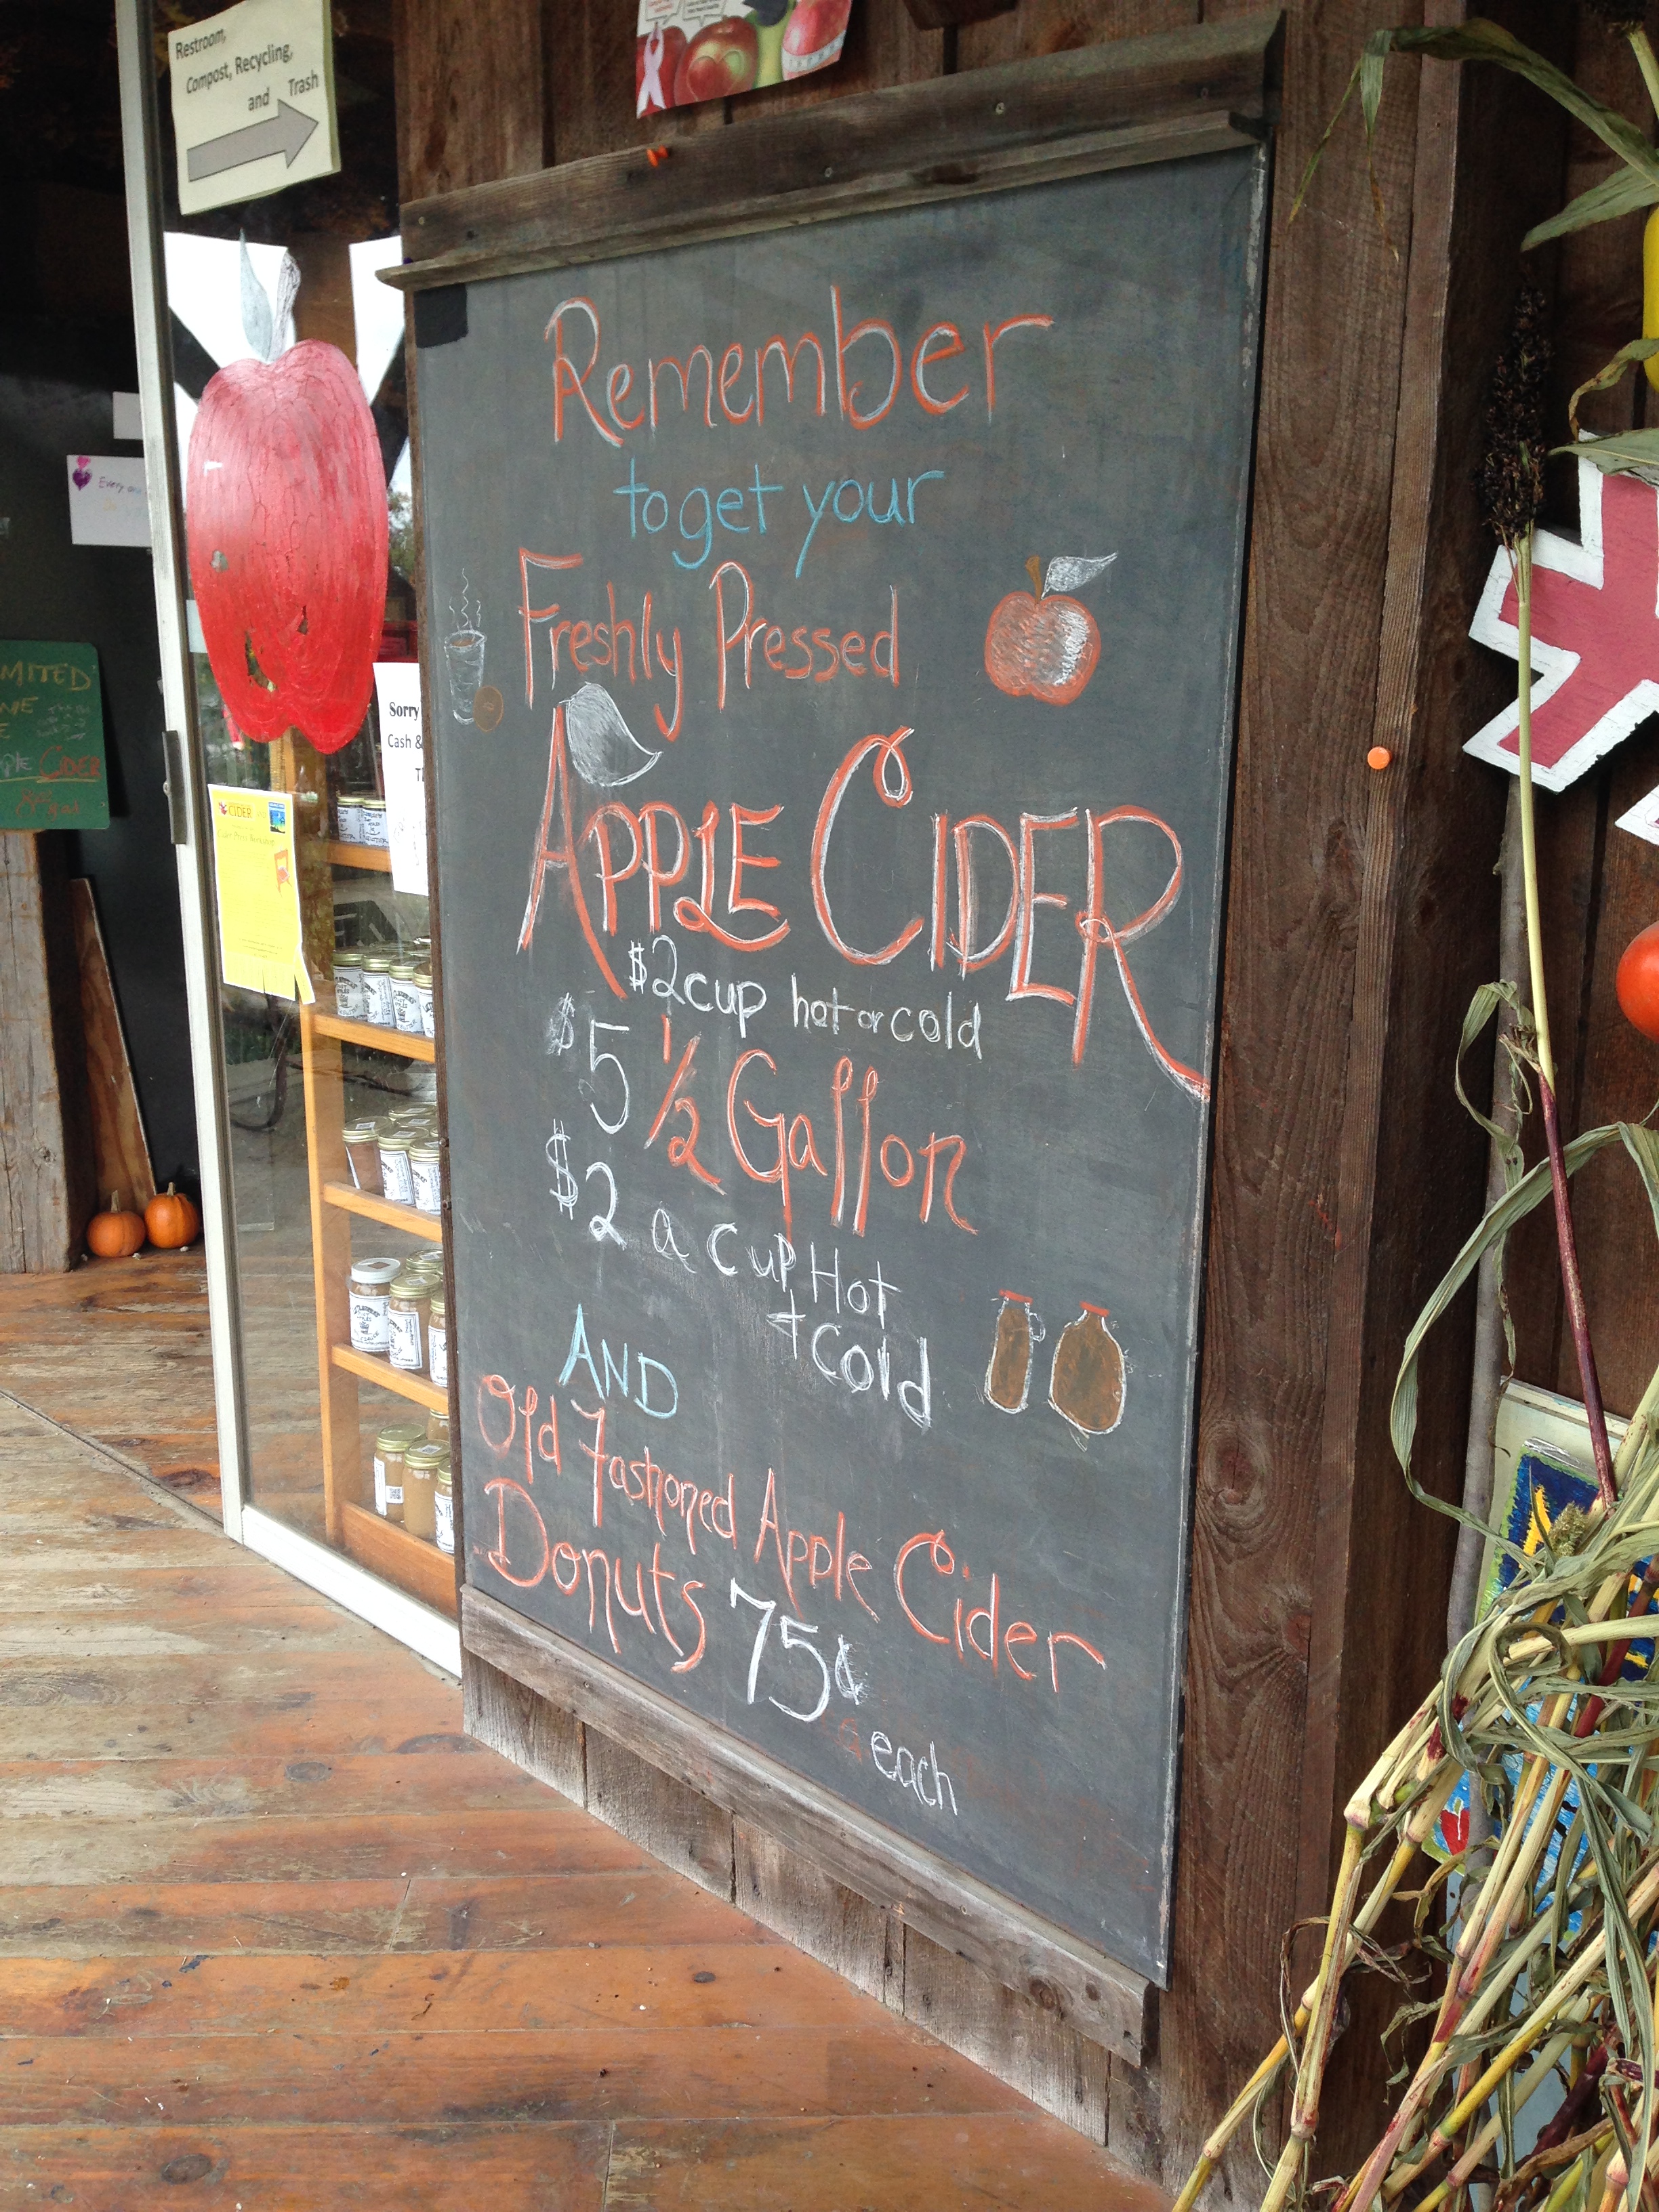 Restroom,
Compost, Recycling,
and Trash
Remember
to get your
Freshly Pressed
APPLE CIDER
$2 cup hot or cold
$5 1/2 Gallon
$2 a cup Hot
+ Cold
AND
Old Fashoned Apple Cider
Donuts 75¢
each
Every
Sorry
Cash &
MITED
CIDER
CIDER